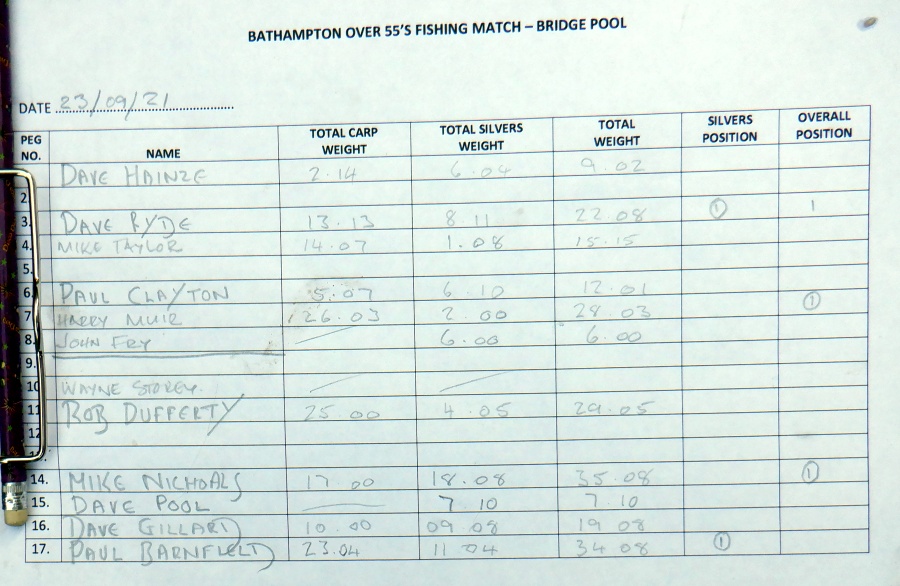 BATHAMPTON OVER 55'S FISHING MATCH – BRIDGE POOL
DATE 23/09/21
PEG NO. NAME TOTAL CARP WEIGHT TOTAL SILVERS WEIGHT TOTAL WEIGHT SILVERS POSITION OVERALL POSITION
DAVE HAINZE 2.14 6.04 9.02
2
3. DAVE RYDE 13.13 8.11 22.08 1 1
4. MIKE TAYLOR 14.07 1.08 15.15
5.
6. PAUL CLAYTON 5.07 6.10 12.01
7 HARRY MUIR 26.03 2.00 28.03 1
8. JOHN FRY 6.00 6.00
9.
10 WAYNE STOREY.
11 ROB DUFFERTY 25.00 4.05 29.05
12
14. MIKE NICHOALS 17.00 18.08 35.08 1
15. DAVE POOL 7.10 7.10
16. DAVE GILLARD 10.00 09.08 19 08
17. PAUL BARNFIELD 23.04 11 04 34 08 1